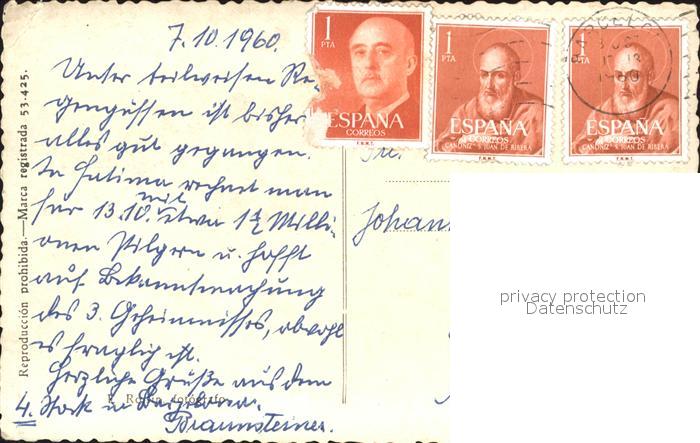 7.10.1960.
Unter teilweisen Re-
gengüssen ist bisher
alles gut gegangen.
In Fatima rechnet man
für 13.10. mit etwa 1½ Milli-
onen Pilgern u. hofft
auf Bekanntmachung
des 3. Geheimnisses, obwohl
es fraglich ist.
Herzliche Grüße aus dem
4. Stock in Barcelona.
Braunsteiner.
Reproducción prohibida.—Marca registrada 53.425.
fotógrafo
1
PTA
ESPAÑA
CORREOS
F.N.M.T.
1
PTA
ESPAÑA
CORREOS
CANONIZ. S. JUAN DE RIBERA
F.N.M.T.
1
PTA
ESPAÑA
CORREOS
CANONIZ. S. JUAN DE RIBERA
F.N.M.T.
Johann
privacy protection
Datenschutz